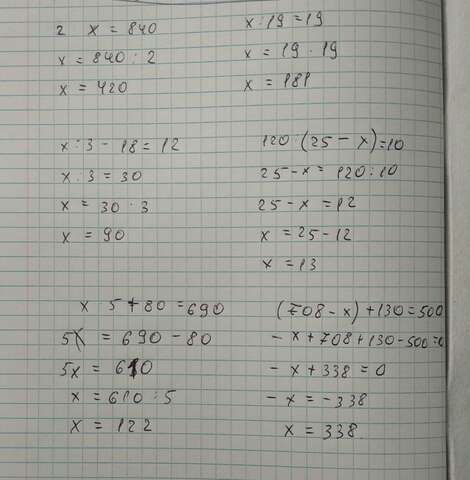 2 x = 840
x = 840 : 2
x = 420
x : 19 = 19
x = 19 · 19
x = 181
x : 3 - 18 = 12
x : 3 = 30
x = 30 · 3
x = 90
120 : (25 - x) = 10
25 - x = 120 : 10
25 - x = 12
x = 25 - 12
x = 13
x 5 + 80 = 690
5x = 690 - 80
5x = 610
x = 610 : 5
x = 122
(708 - x) + 130 = 500
- x + 708 + 130 - 500 = 0
- x + 338 = 0
- x = - 338
x = 338.